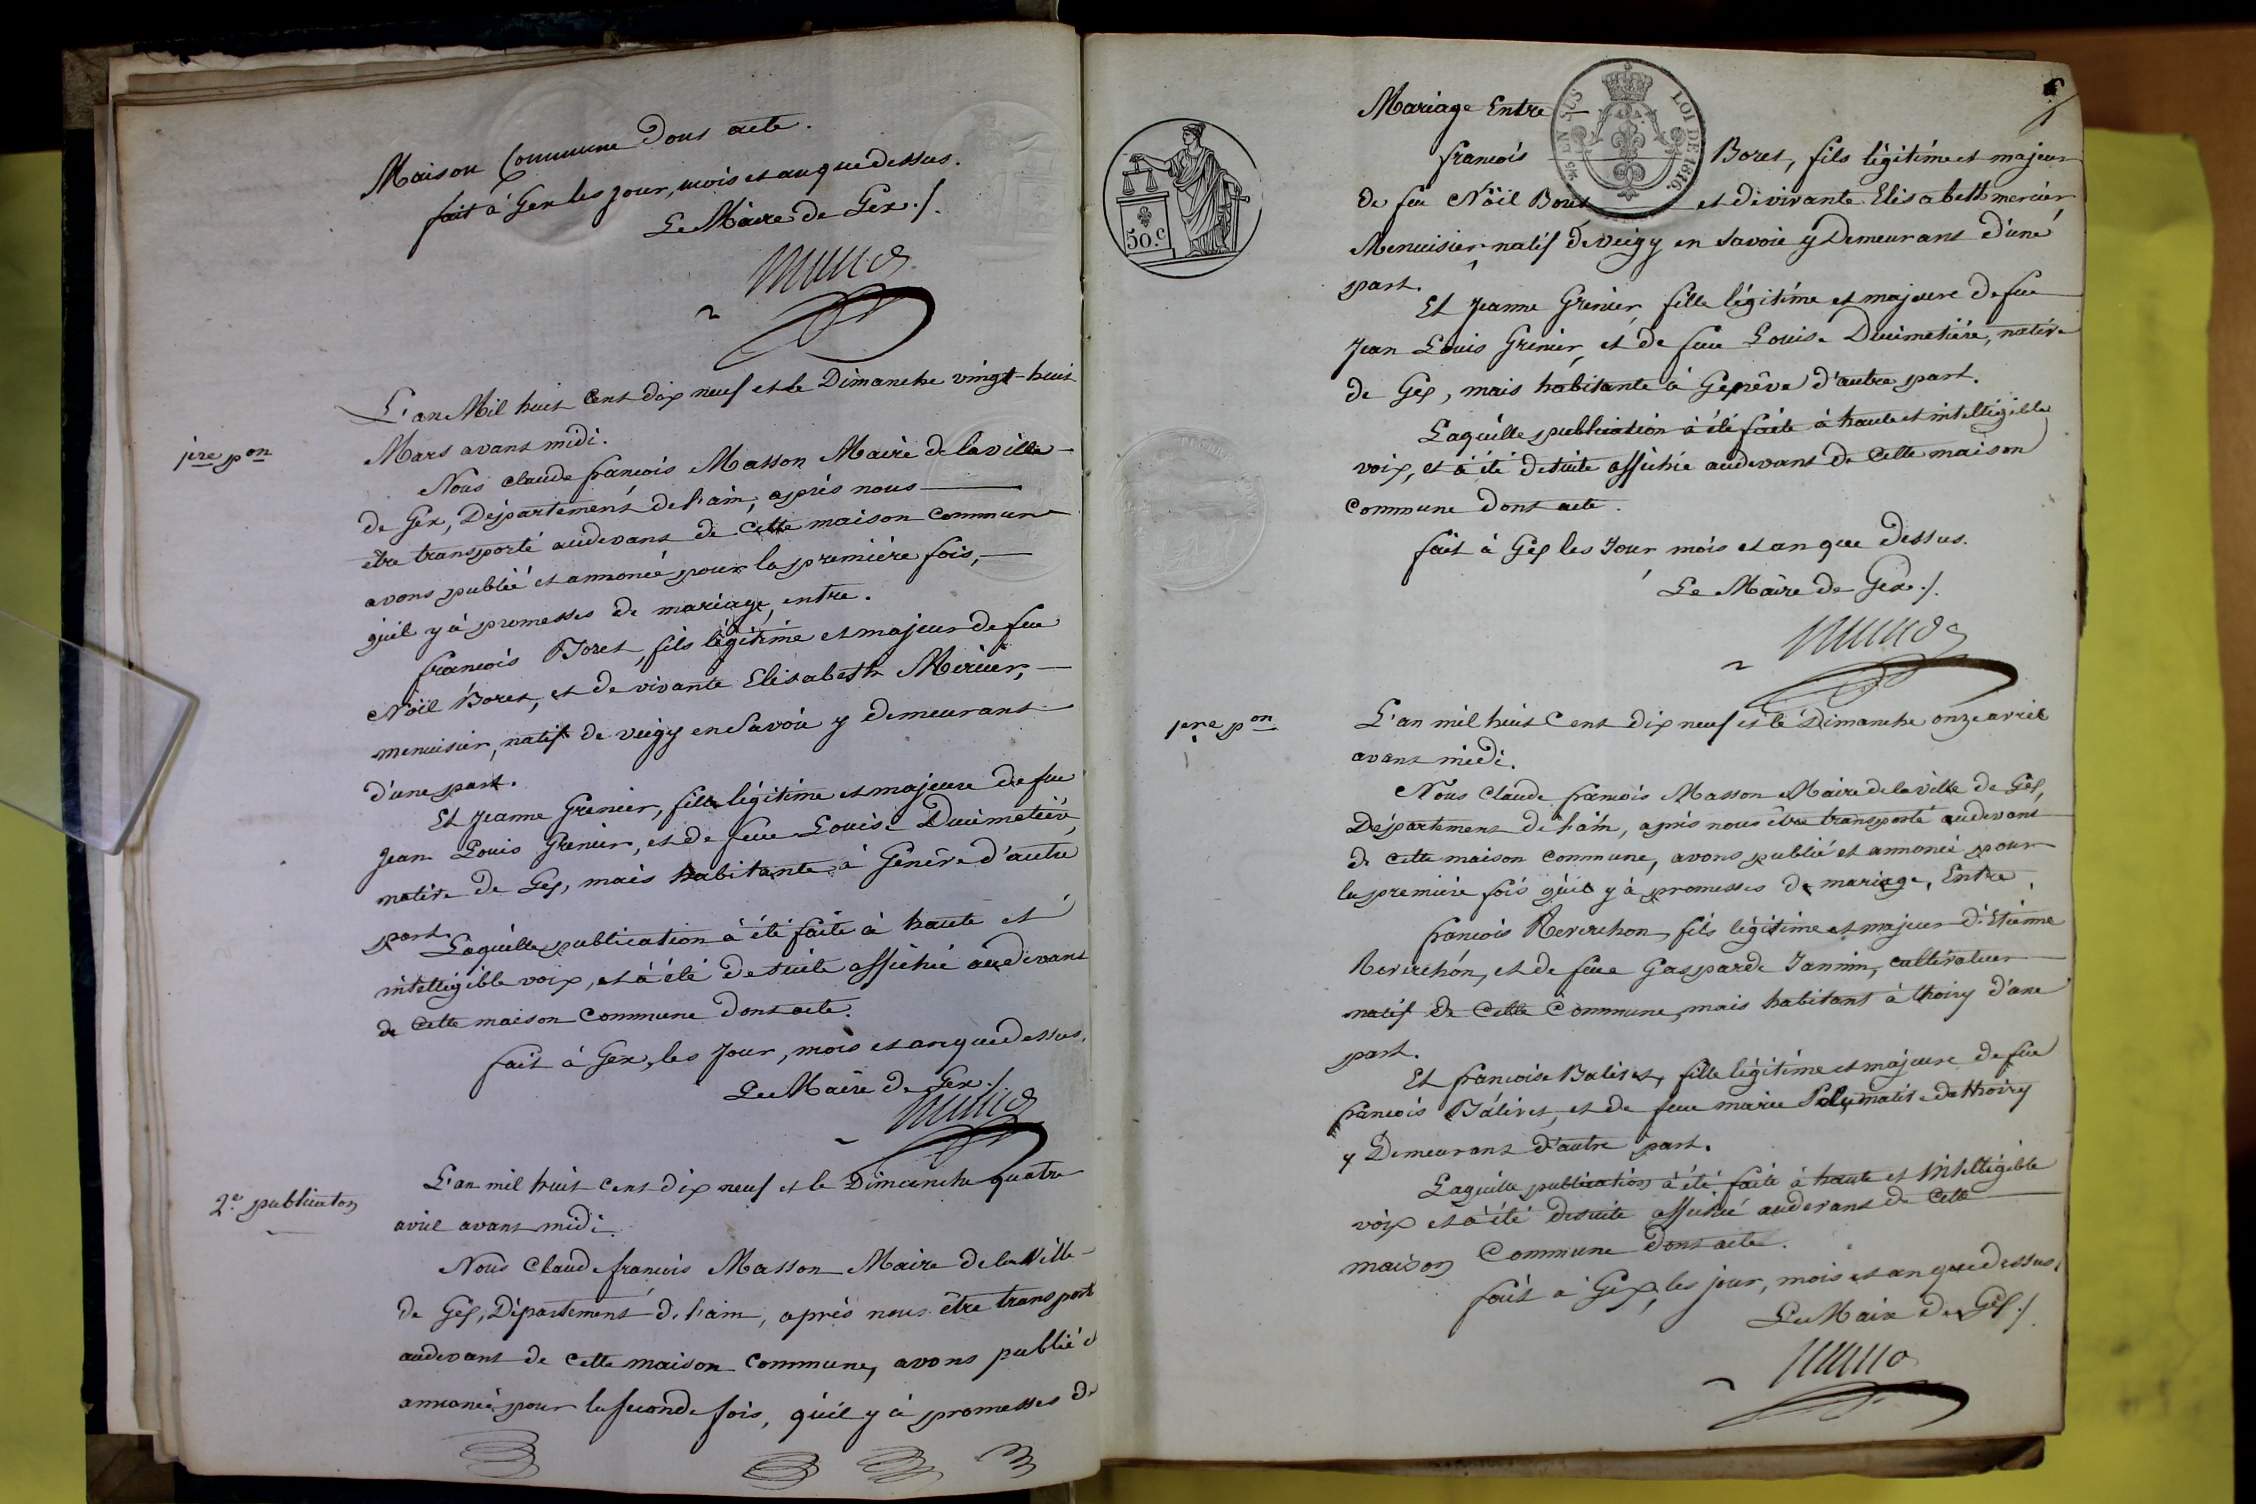 Maison Commune dont acte.
fait à Gex les jour, mois et an que dessus.
Le Maire de Gex ./.
L'an Mil huit Cent dix neuf et le Dimanche vingt-huit
1ere pon
Mars avant midi.
Nous Claude francois Masson Maire de la ville
de Gex, Département de l'ain, après nous
être transporté audevant de cette maison commune
avons publié et annoncé pour la première fois,
qu'il y à promesses de mariage, entre.
francois Boret, fils légitime et majeur de feu
Nöel Boret, et de vivante Elisabeth Mercier,
menuisier, natif de veigy en Savoie y demeurant
d'une part.
Et Jeanne Grenier, fille légitime et majeure de feu
Jean Louis Grenier, et de feue Louise Ducimetière,
native de Gex, mais habitante à Genève d'autre
part.
Laquelle publication à été faite à haute et
intelligible voix, et à été de suite affichée audevant
de cette maison commune dont acte.
fait à Gex, les jour, mois et an que dessus.
Le Maire de Gex ./.
2e. publicaton
L'an mil huit cent dix neuf et le Dimanche quatre
avril avant midi.
Nous Claude francois Masson Maire de la Ville
de Gex, Département de l'ain, après nous être transporté
audevant de cette maison commune, avons publié &
annoncé pour la seconde fois, qu'il y à promesses de
Mariage Entre
francois Boret, fils légitime et majeur
de feu Nöel Boret et de vivante Elisabeth mercier,
Menuisier natif de veigy en Savoie y Demeurant d'une
part.
Et Jeanne Grenier, fille légitime et majeure de feu
Jean Louis Grenier, et de feue Louise Ducimetière, native
de Gex, mais habitante à Genève d'autre part.
Laquelle publication à été faite à haute et intelligible
voix, et à été de suite affichée audevant de cette maison
commune dont acte.
fait à Gex les Jour, mois et an que dessus.
Le Maire de Gex ./.
1ere pon
L'an mil huit cent dix neuf et le Dimanche onze avril
avant midi.
Nous Claude francois Masson Maire de la ville de Gex,
Département de l'ain, après nous être transporté audevant
de cette maison commune, avons publié et annoncé pour
la première fois qu'il y à promesses de mariage, Entre
francois Reverchon, fils légitime et majeur d'Etienne
Reverchon, et de feue Gasparde Jannin, cultivateur
natif de cette Commune, mais habitant à thoiry d'une
part.
Et francoise Balivet, fille légitime et majeure de feu
francois Balivet, et de feue marie native de thoiry
y Demeurant d'autre part.
Laquelle publication à été faite à haute et intelligible
voix et à été desuite affiché audevant de cette
maison Commune dont acte.
fait à Gex, les jour, mois et an que dessus.
Le Maire de Gex ./.
50.c
EN SUS
LOI DE 1816.